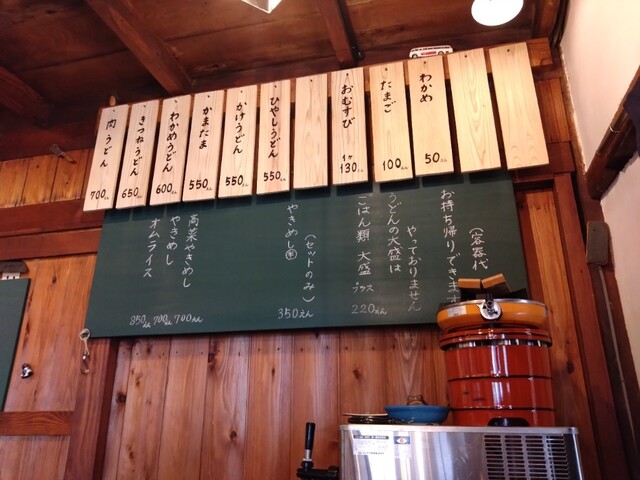 わかめ 50えん
たまご 100えん
おむすび 1ケ 130えん
ひやしうどん 550えん
かけうどん 550えん
かまたま 550えん
わかめうどん 600えん
きつねうどん 650えん
肉うどん 700えん
(容器代
お持ち帰りできます
やっておりません
うどんの大盛は
ごはん類 大盛 プラス 220えん
(セットのみ)
やきめし 350えん
高菜やきめし 700えん
やきめし 700えん
オムライス 850えん